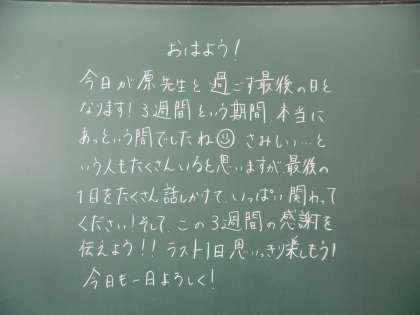 おはよう!
今日が原先生と過ごす最後の日と
なります!3週間という期間、本当に
あっという間でしたね☺さみしい…と
いう人もたくさんいると思いますが、最後の
1日をたくさん話しかけて、いっぱい関わって
ください!そして、この3週間の感謝を
伝えよう!!ラスト1日思いっきり楽しもう!
今日も一日よろしく!